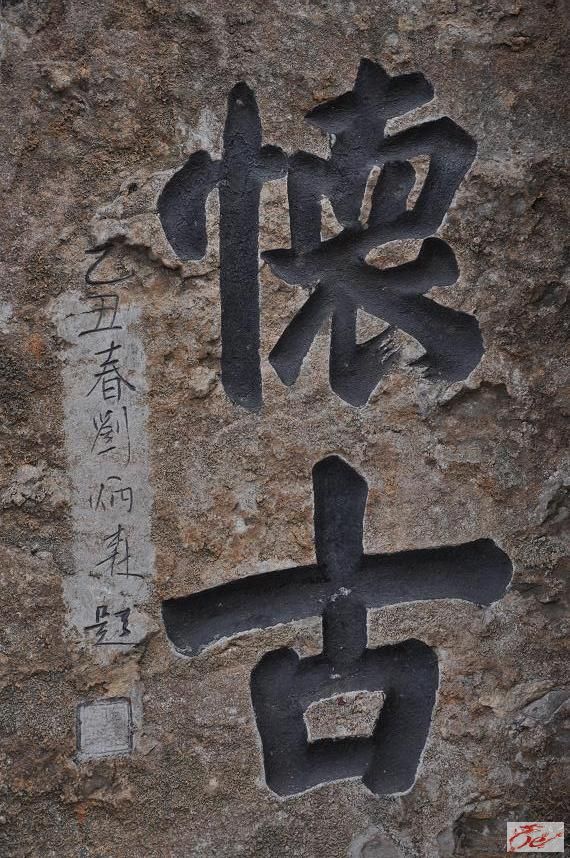 懷古
乙丑春劉炳森題